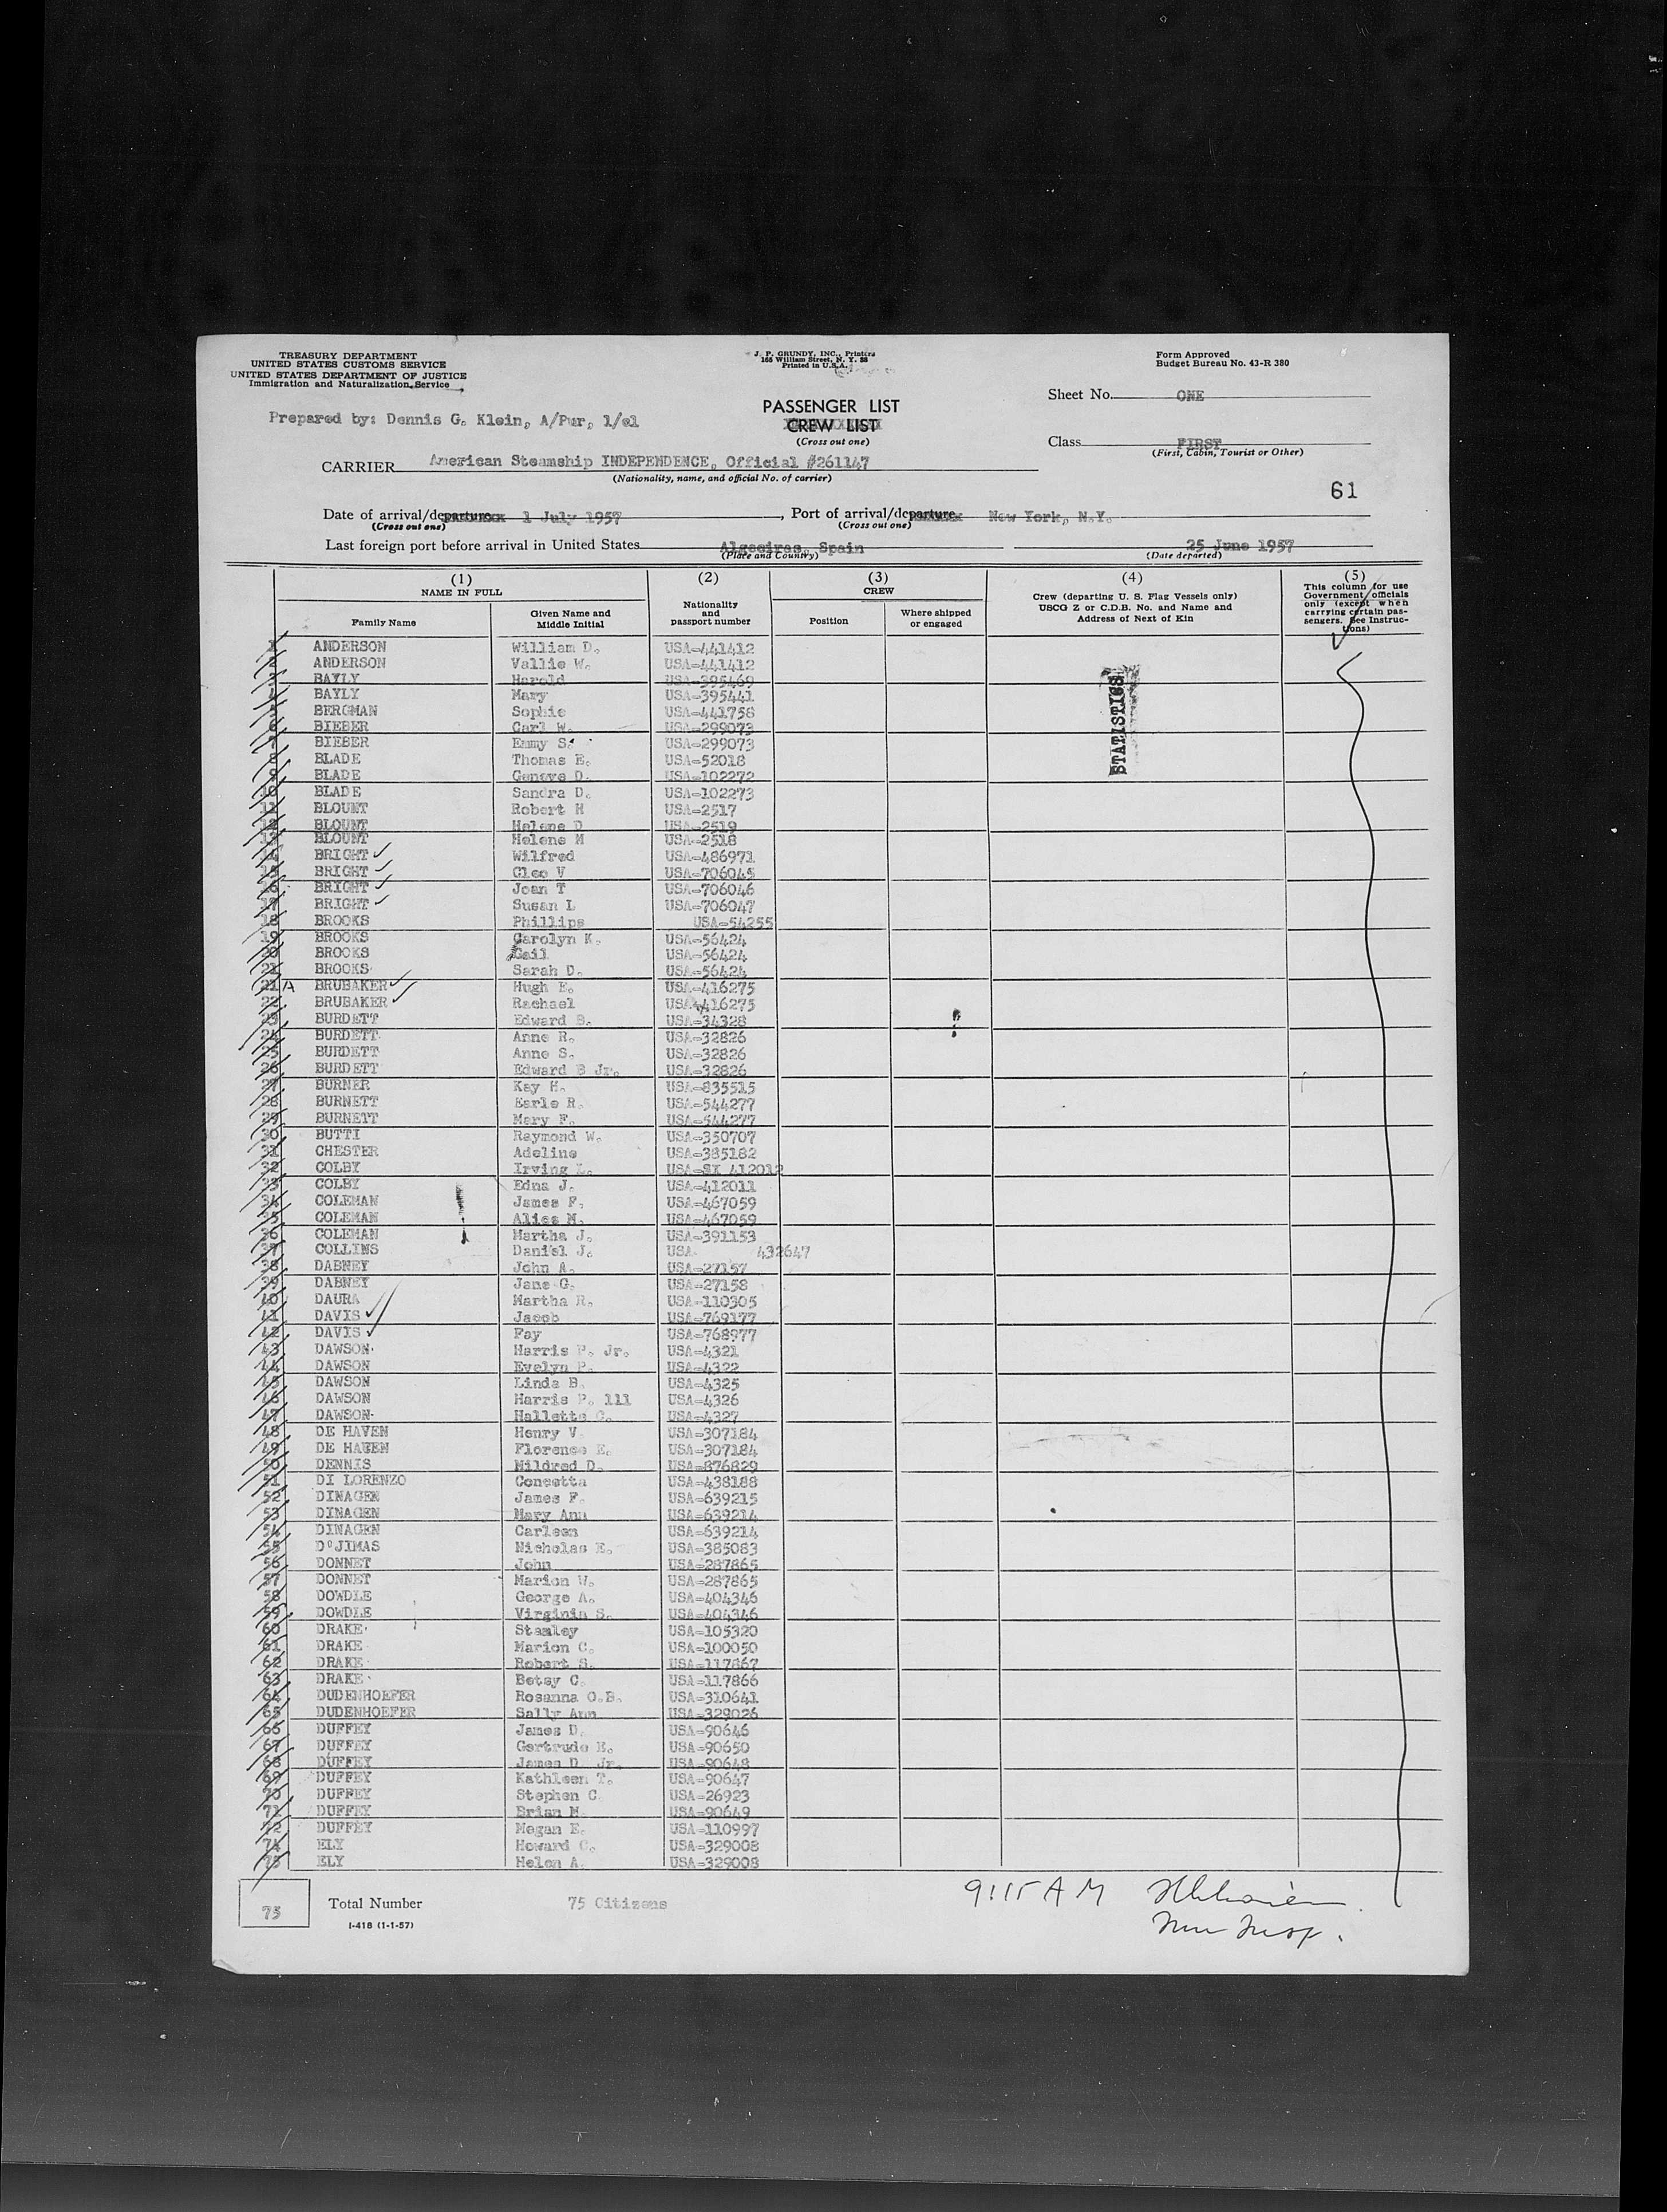 TREASURY DEPARTMENT
UNITED STATES CUSTOMS SERVICE
UNITED STATES DEPARTMENT OF JUSTICE
Immigration and Naturalization Service
J. P. GRUNDY, INC., Printers
165 William Street, N. Y. 38
Printed in U.S.A.
Form Approved
Budget Bureau No. 43-R 380
Prepared by: Dennis G. Klein, A/Pur, 1/cl
PASSENGER LIST
CREW LIST
(Cross out one)
Sheet No. ONE
Class FIRST
(First, Cabin, Tourist or Other)
CARRIER American Steamship INDEPENDENCE, Official #261147
(Nationality, name, and official No. of carrier)
61
Date of arrival/departure 1 July 1957, Port of arrival/departure New York, N.Y.
(Cross out one) (Cross out one)
Last foreign port before arrival in United States Algeciras, Spain 25 June 1957
(Place and Country) (Date departed)
(1) NAME IN FULL
Family Name
Given Name and Middle Initial
(2) Nationality and passport number
(3) CREW
Position
Where shipped or engaged
(4) Crew (departing U. S. Flag Vessels only) USCG Z or C.D.B. No. and Name and Address of Next of Kin
(5) This column for use Government officials only (except when carrying certain passengers. See Instructions)
STATISTICS
1 ANDERSON William D. USA-441412
2 ANDERSON Vallie W. USA-441412
3 BAYLY Harold USA-395469
4 BAYLY Mary USA-395441
5 BERGMAN Sophie USA-441758
6 BIEBER Carl W. USA-299073
7 BIEBER Emmy S. USA-299073
8 BLADE Thomas E. USA-52018
9 BLADE Geneve D. USA-102272
10 BLADE Sandra D. USA-102273
11 BLOUNT Robert H USA-2517
12 BLOUNT Helene D USA-2519
13 BLOUNT Helene M USA-2518
14 BRIGHT Wilfred USA-486971
15 BRIGHT Cleo V USA-706045
16 BRIGHT Joan T USA-706046
17 BRIGHT Susan L USA-706047
18 BROOKS Phillips USA-54255
19 BROOKS Carolyn K. USA-56424
20 BROOKS Gail USA-56424
21 BROOKS Sarah D. USA-56424
21 A BRUBAKER Hugh E. USA-416275
22 BRUBAKER Rachael USA-416275
23 BURDETT Edward B. USA-34328
24 BURDETT Anne R. USA-32826
25 BURDETT Anne S. USA-32826
26 BURDETT Edward B Jr. USA-32826
27 BURNER Kay H. USA-835515
28 BURNETT Earle R. USA-544277
29 BURNETT Mary F. USA-544277
30 BUTTI Raymond W. USA-350707
31 CHESTER Adeline USA-385182
32 COLBY Irving L. USA-SI 412012
33 COLBY Edna J. USA-412011
34 COLEMAN James F. USA-467059
35 COLEMAN Alice M. USA-467059
36 COLEMAN Martha J. USA-391153
37 COLLINS Daniel J. USA 432647
38 DABNEY John A. USA-27157
39 DABNEY Jane G. USA-27158
40 DAURA Martha R. USA-110305
41 DAVIS Jacob USA-769177
42 DAVIS Fay USA-768977
43 DAWSON Harris P. Jr. USA-4321
44 DAWSON Evelyn P. USA-4322
45 DAWSON Linda B. USA-4325
46 DAWSON Harris P. 111 USA-4326
47 DAWSON Hallette C. USA-4327
48 DE HAVEN Henry V. USA-307184
49 DE HAVEN Florence E. USA-307184
50 DENNIS Mildred D. USA-876829
51 DI LORENZO Concetta USA-438188
52 DINAGEN James F. USA-639215
53 DINAGEN Mary Ann USA-639214
54 DINAGEN Carleen USA-639214
55 D'JIMAS Nicholas E. USA-385083
56 DONNET John USA-287865
57 DONNET Marion W. USA-287865
58 DOWDLE George A. USA-404346
59 DOWDLE Virginia S. USA-404346
60 DRAKE Stanley USA-105320
61 DRAKE Marion C. USA-100050
62 DRAKE Robert S. USA-117867
63 DRAKE Betsy C. USA-117866
64 DUDENHOEFER Rosanna O.B. USA-310641
65 DUDENHOEFER Sally Ann USA-329026
66 DUFFEY James D. USA-90646
67 DUFFEY Gertrude E. USA-90650
68 DUFFEY James D Jr. USA-90648
69 DUFFEY Kathleen T. USA-90647
70 DUFFEY Stephen C. USA-26923
71 DUFFEY Brian M. USA-90649
72 DUFFEY Megan E. USA-110997
74 ELY Howard C. USA-329008
75 ELY Helen A. USA-329008
75 Total Number 75 Citizens
I-418 (1-1-57)
9:15 AM
Imm Insp.